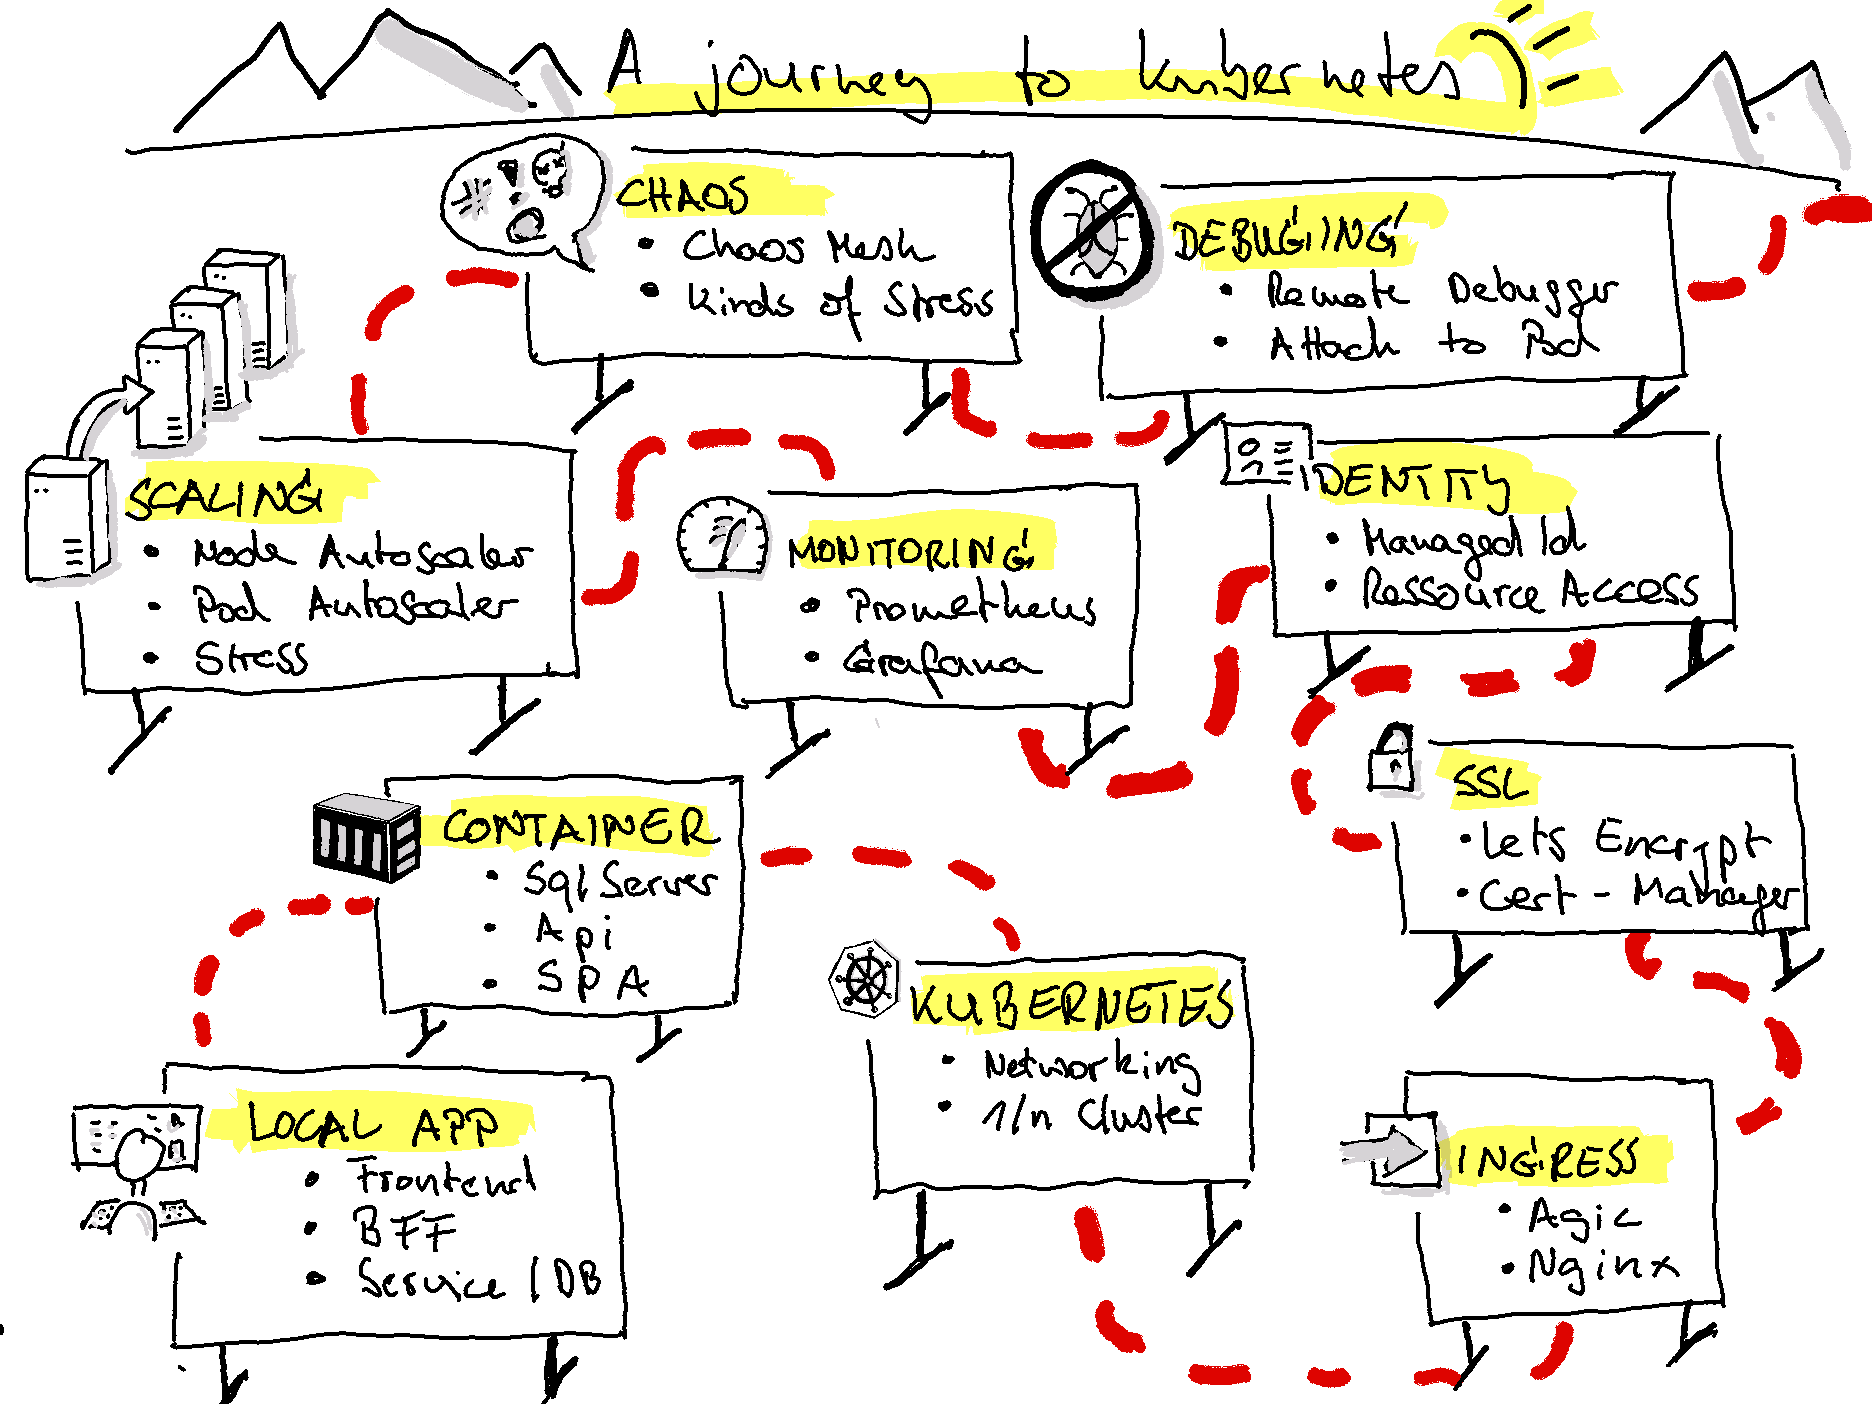 A journey to Kubernetes
CHAOS
• Chaos Mesh
• Kinds of Stress
DEBUGIING
• Remote Debugger
• Attach to Pod
SCALING
• Node Autoscaler
• Pod Autoscaler
• Stress
MONITORING
• Prometheus
• Grafana
IDENTITY
• Managed Id
• Ressource Access
CONTAINER
• Sql Server
• Api
• SPA
SSL
• Lets Encrypt
• Cert-Manager
KUBERNETES
• Networking
• 1/n Cluster
LOCAL APP
• Frontend
• BFF
• Service / DB
INGRESS
• Agic
• Nginx